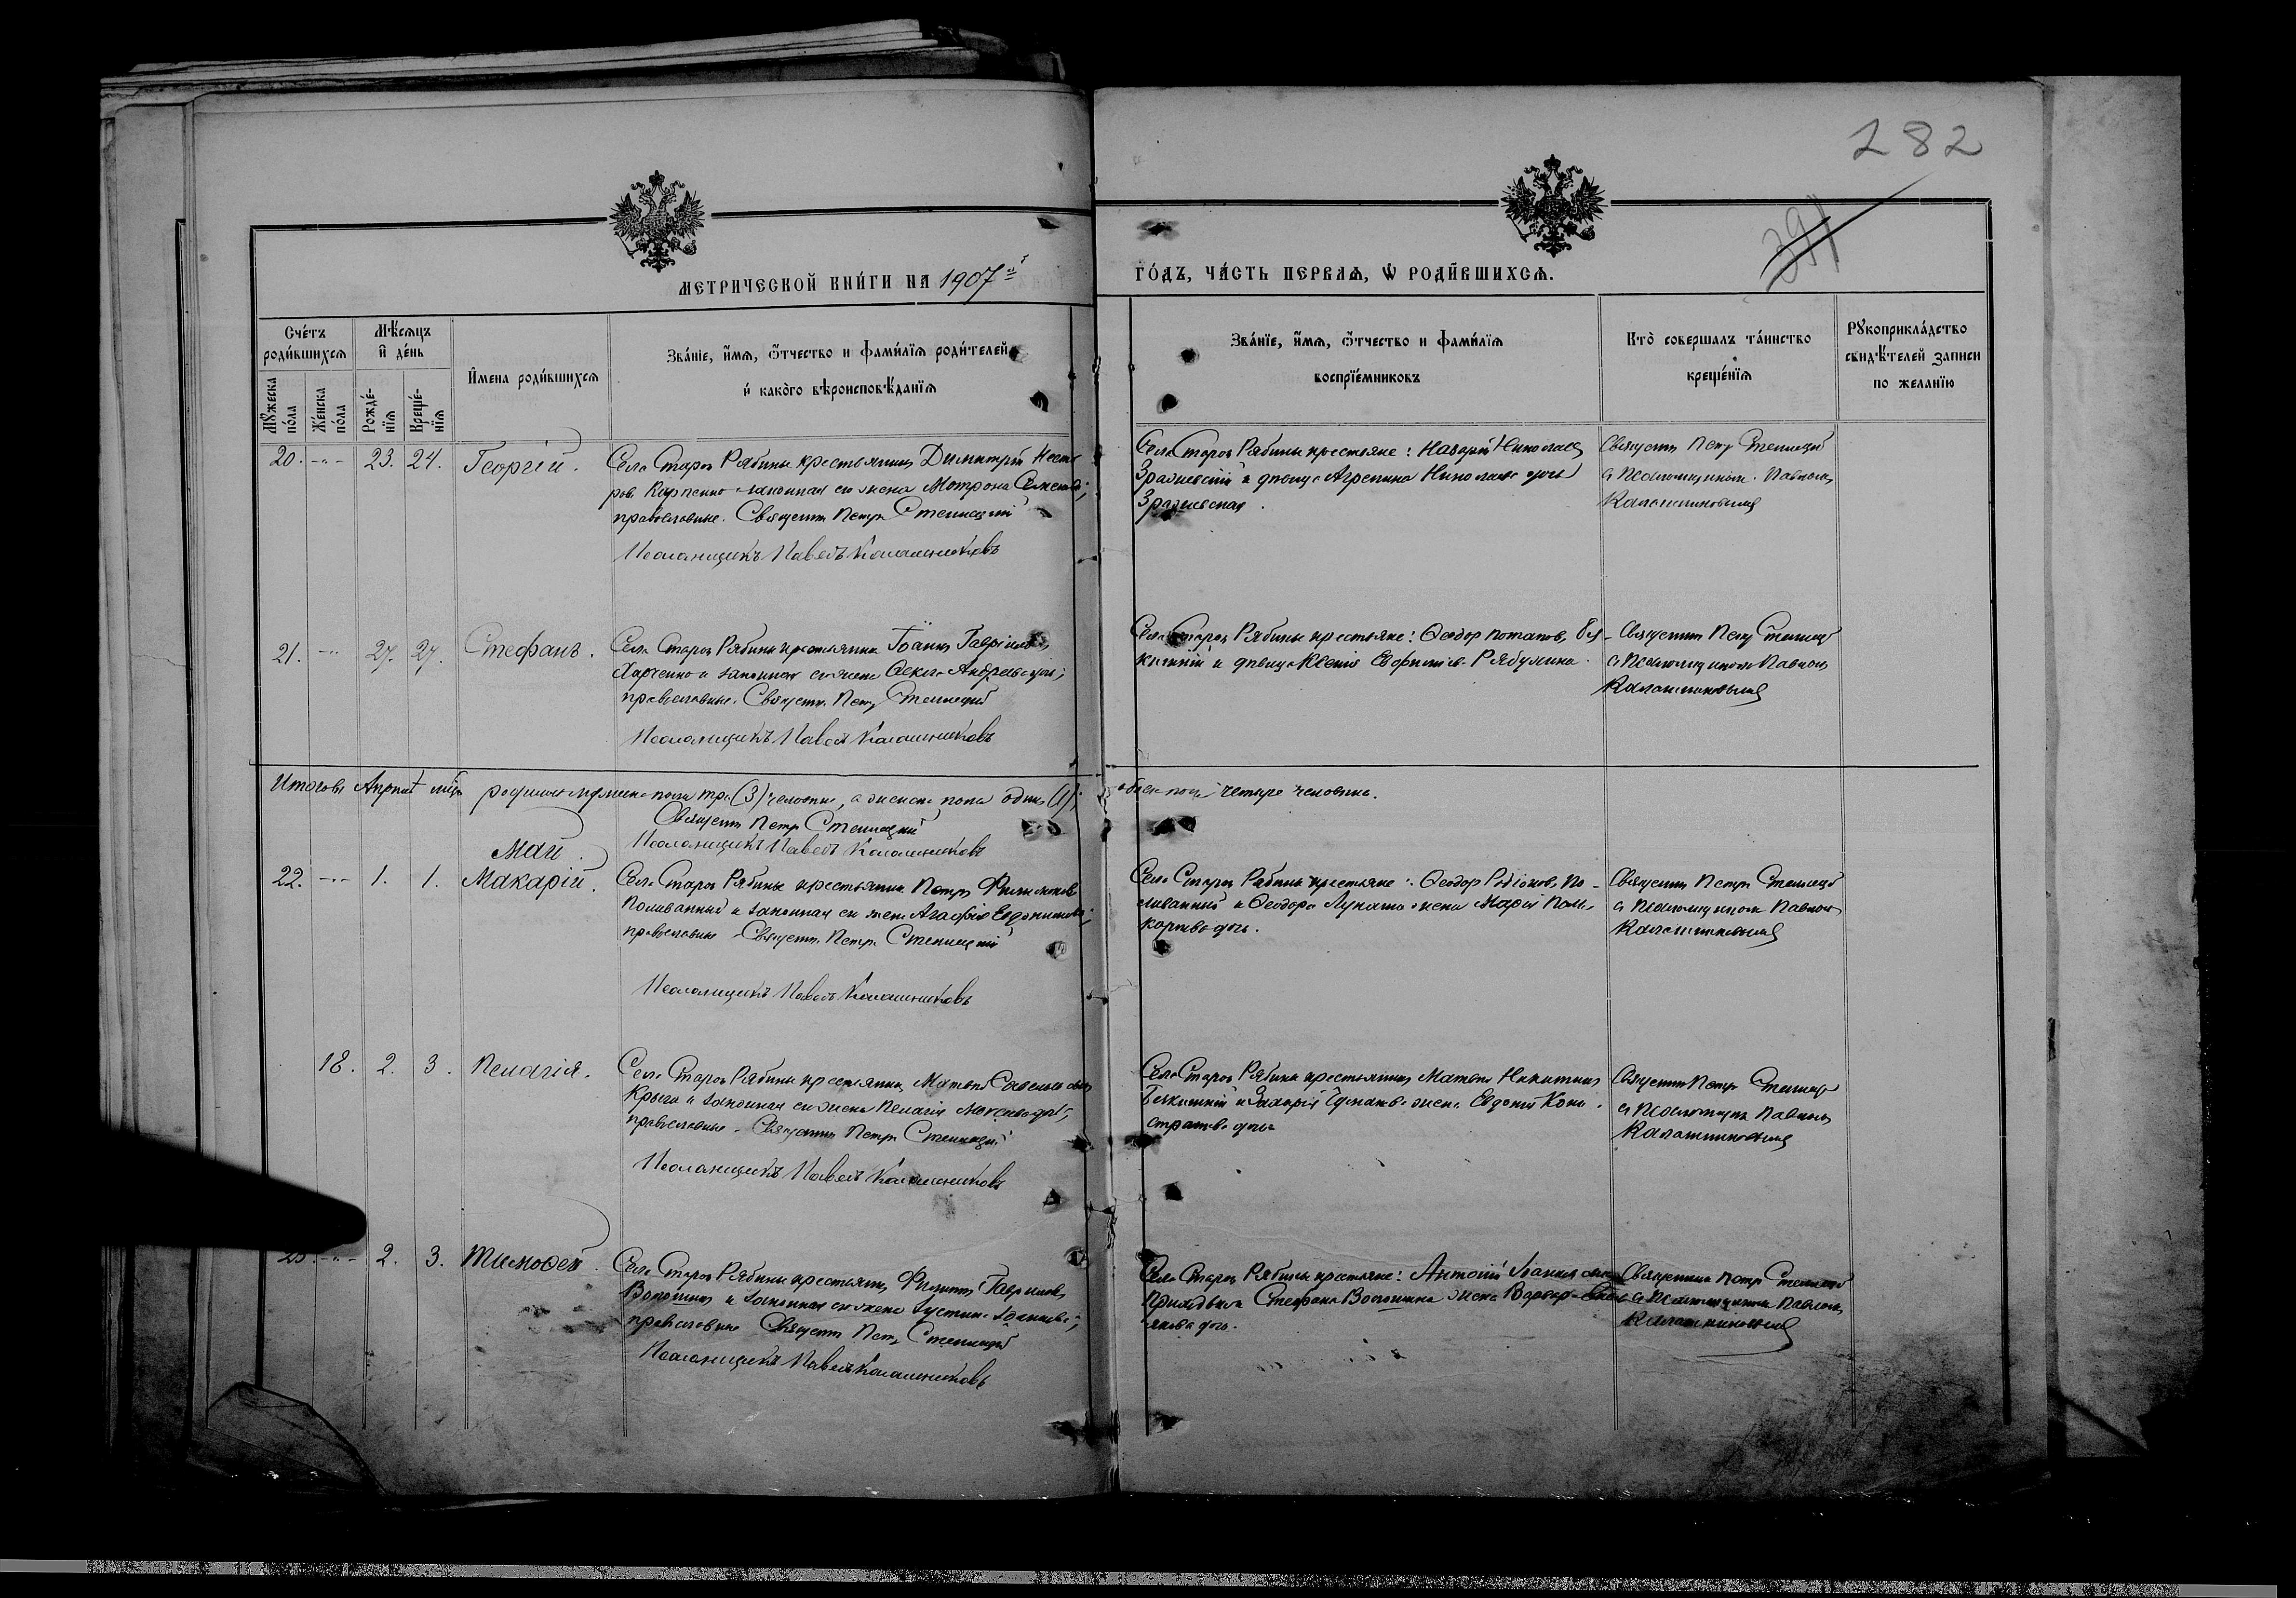 282
МЕТРИЧЕСКОЙ КНИ́ГИ НА 1907 й
ГО́ДЪ, ЧА́СТЬ ПЕРВАѦ, Ѡ РОДИ́ВШИХСѦ.
Сче́тъ роди́вшихсѧ
Мѣ́сѧцъ и҆ де́нь
Мꙋ́жеска по́ла
Же́нска по́ла
Рожде́-нїѧ
Креще́-нїѧ
И҆мена роди́вшихсѧ
Зва́нїе, и҆́мѧ, ѻ҆́тчество и фами́лїѧ роди́телей
и҆ како́гѡ вѣроисповѣ́данїѧ
Зва́нїе, и҆́мѧ, ѻ҆́тчество и фами́лїѧ
воспрїе́мниковъ
Кто̀ соверша́лъ та́инство
креще́нїѧ
Рꙋкоприкла́дство
свидѣ́телей записи
по жела́нїю
20. -"- 23. 24. Георгій.
Села Старой Рябины крестьянинъ Димитрій Несто
ровъ Карпенко законная его жена Мотрона
православные. Священ. Петръ Стеллецкій
Псаломщикъ Павелъ Калашниковъ
Села Старой Рябины крестьяне: Назарій Николаевъ
и девица Агрепина Николаева дочь
Священ. Петръ Стеллецкій
съ Псаломщикомъ Павломъ
Калашниковымъ
21. -"- 27. 27. Стефанъ.
Села Старой Рябины крестьянинъ Іоаннъ Гавріиловъ
Харченко и законная его жена Ѳекла Андреева дочь;
православные. Священ. Петръ Стеллецкій
Псаломщикъ Павелъ Калашниковъ
Села Старой Рябины крестьяне: Ѳеодоръ Потаповъ
и девица Ксенія Рябушкина.
Священ. Петръ Стеллецкій
съ Псаломщикомъ Павломъ
Калашниковымъ
Итого въ Апрелѣ м-цѣ родилось мужеска пола три (3) человѣка, а женска пола одинъ (1); обоего пола четыре человѣка.
Священ. Петръ Стеллецкій
Псаломщикъ Павелъ Калашниковъ
Май.
22. -"- 1. 1. Макарій.
Села Старой Рябины крестьянинъ Петръ Филимоновъ
Поливанный и законная его жена Агафія
православные Священ. Петръ Стеллецкій
Псаломщикъ Павелъ Калашниковъ
Села Старой Рябины крестьяне: Ѳеодоръ Родіоновъ По-
ливанный и Ѳеодора жена Марія Поли-
карпова дочь.
Священ. Петръ Стеллецкій
съ Псаломщикомъ Павломъ
Калашниковымъ
18. 2. 3. Пелагія.
Села Старой Рябины крестьянинъ Матѳей
и законная его жена Пелагія
православные. Священ. Петръ Стеллецкій
Псаломщикъ Павелъ Калашниковъ
Села Старой Рябины крестьянинъ Матѳей Никитинъ
и жена Евдокія Кали-
стратова дочь
Священ. Петръ Стеллецкій
съ Псаломщикомъ Павломъ
Калашниковымъ
-"- 2. 3. Тимоѳей.
Села Старой Рябины крестьянинъ Филиппъ Гавриловъ
Волошинъ и законная его жена Іустина Іоаннова;
православные Священ. Петръ Стеллецкій
Псаломщикъ Павелъ Калашниковъ
Села Старой Рябины крестьяне: Антоній
Приходько и Стефана Волошина жена Варвара
дочь.
Священникъ Петръ Стеллецкій
съ Псаломщикомъ Павломъ
Калашниковымъ